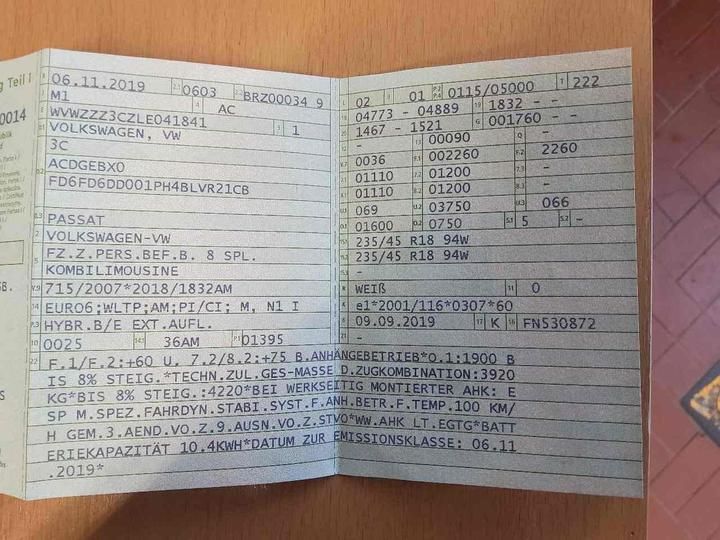 g Teil I
0014
06.11.2019 2.1 0603 2.2 BRZ00034 9
J M1 4 AC
E WVWZZZ3CZLE041841 3 1
D.1 VOLKSWAGEN, VW
3C
D.2 ACDGEBX0
FD6FD6DD001PH4BLVR21CB
D.3 PASSAT
2 VOLKSWAGEN-VW
5 FZ.Z.PERS.BEF.B. 8 SPL.
KOMBILIMOUSINE
V.9 715/2007*2018/1832AM
14 EURO6;WLTP;AM;PI/CI; M, N1 I
P.3 HYBR.B/E EXT.AUFL.
10 0025 14.1 36AM P.1 01395
L 02 9 01 P.2 P.4 0115/05000 T 222
18 04773 - 04889 19 1832 - -
20 1467 - 1521 G 001760 - -
12 - 13 00090 Q -
V.7 0036 F.1 002260 F.2 2260
7.1 01110 7.2 01200 7.3 -
8.1 01110 8.2 01200 8.3 -
U.1 069 U.2 03750 U.3 066
O.1 01600 O.2 0750 S.1 5 S.2 -
15.1 235/45 R18 94W
15.2 235/45 R18 94W
15.3 -
R WEIß 11 0
K e1*2001/116*0307*60
6 09.09.2019 17 K 16 FN530872
21 -
22 F.1/F.2:+60 U. 7.2/8.2:+75 B.ANHÄNGEBETRIEB*O.1:1900 B
IS 8% STEIG.*TECHN.ZUL.GES-MASSE D.ZUGKOMBINATION:3920
KG*BIS 8% STEIG.:4220*BEI WERKSEITIG MONTIERTER AHK: E
SP M.SPEZ.FAHRDYN.STABI.SYST.F.ANH.BETR.F.TEMP.100 KM/
H GEM.3.AEND.VO.Z.9.AUSN.VO.Z.STVO*WW.AHK LT.EGTG*BATT
ERIEKAPAZITÄT 10.4KWH*DATUM ZUR EMISSIONSKLASSE: 06.11
.2019*